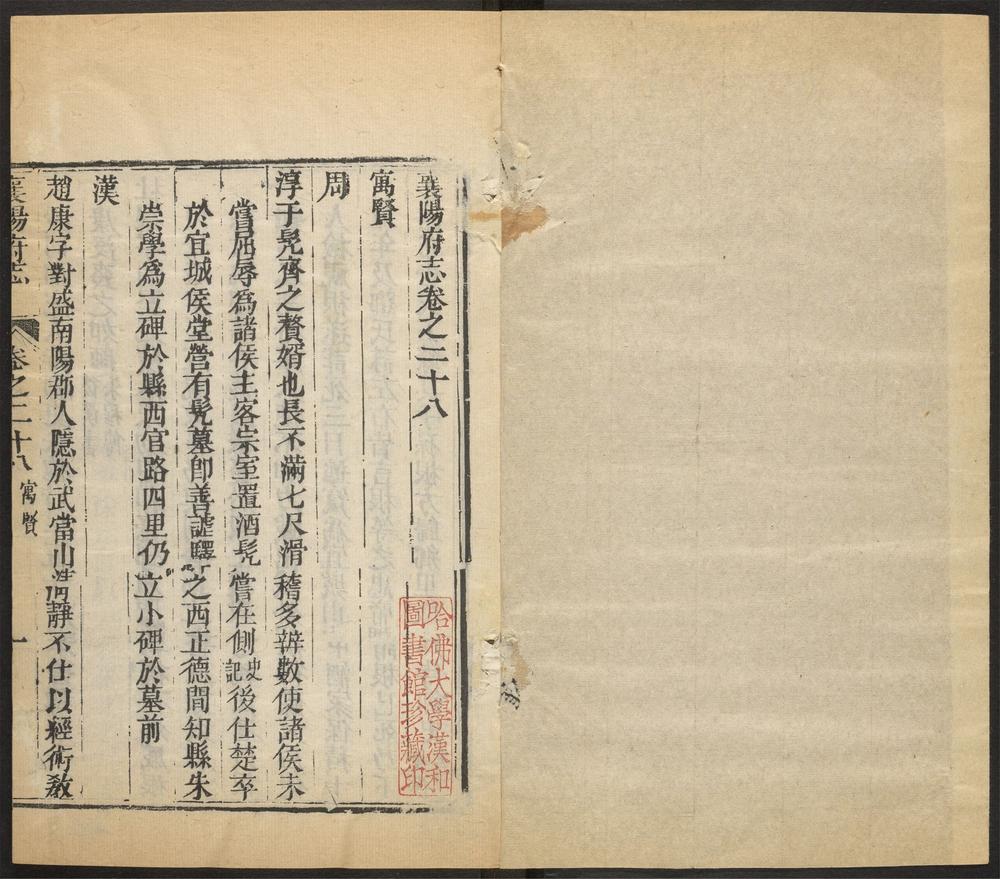 襄陽府志卷之二十八
寓賢
周
淳于髠齊之贅婿也長不滿七尺滑稽多辨數使諸侯未
嘗屈辱爲諸侯主客宗室置酒髠嘗在側史記後仕楚卒
於宜城侯堂營有髠墓卽善謔驛之西正德間知縣朱
崇學爲立碑於縣西官路四里仍立小碑於墓前
漢
趙康字對盛南陽郡人隱於武當山淸靜不仕以經術敎
襄陽府志 卷之二十八 寓賢 一
哈佛大學漢和
圖書館珍藏印